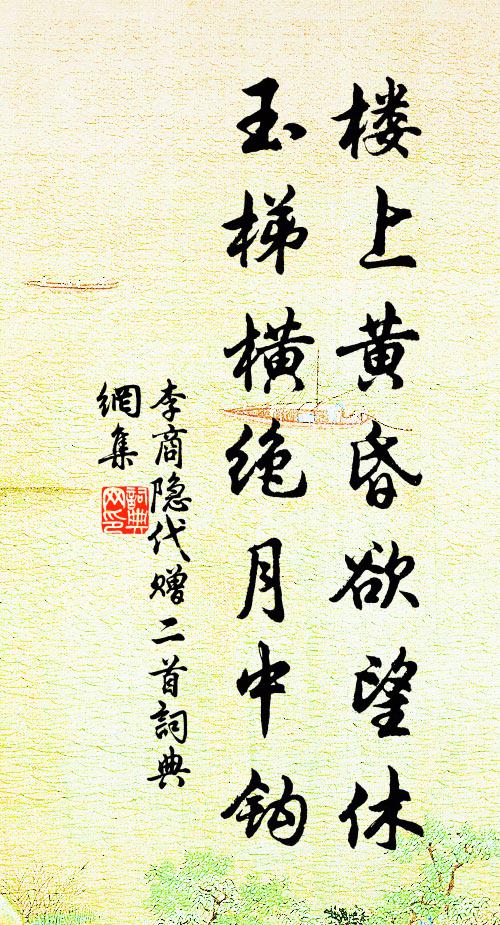 楼上黄昏欲望休
玉梯横绝月中钩
李商隐代赠二首詞典
網集
詞典网印